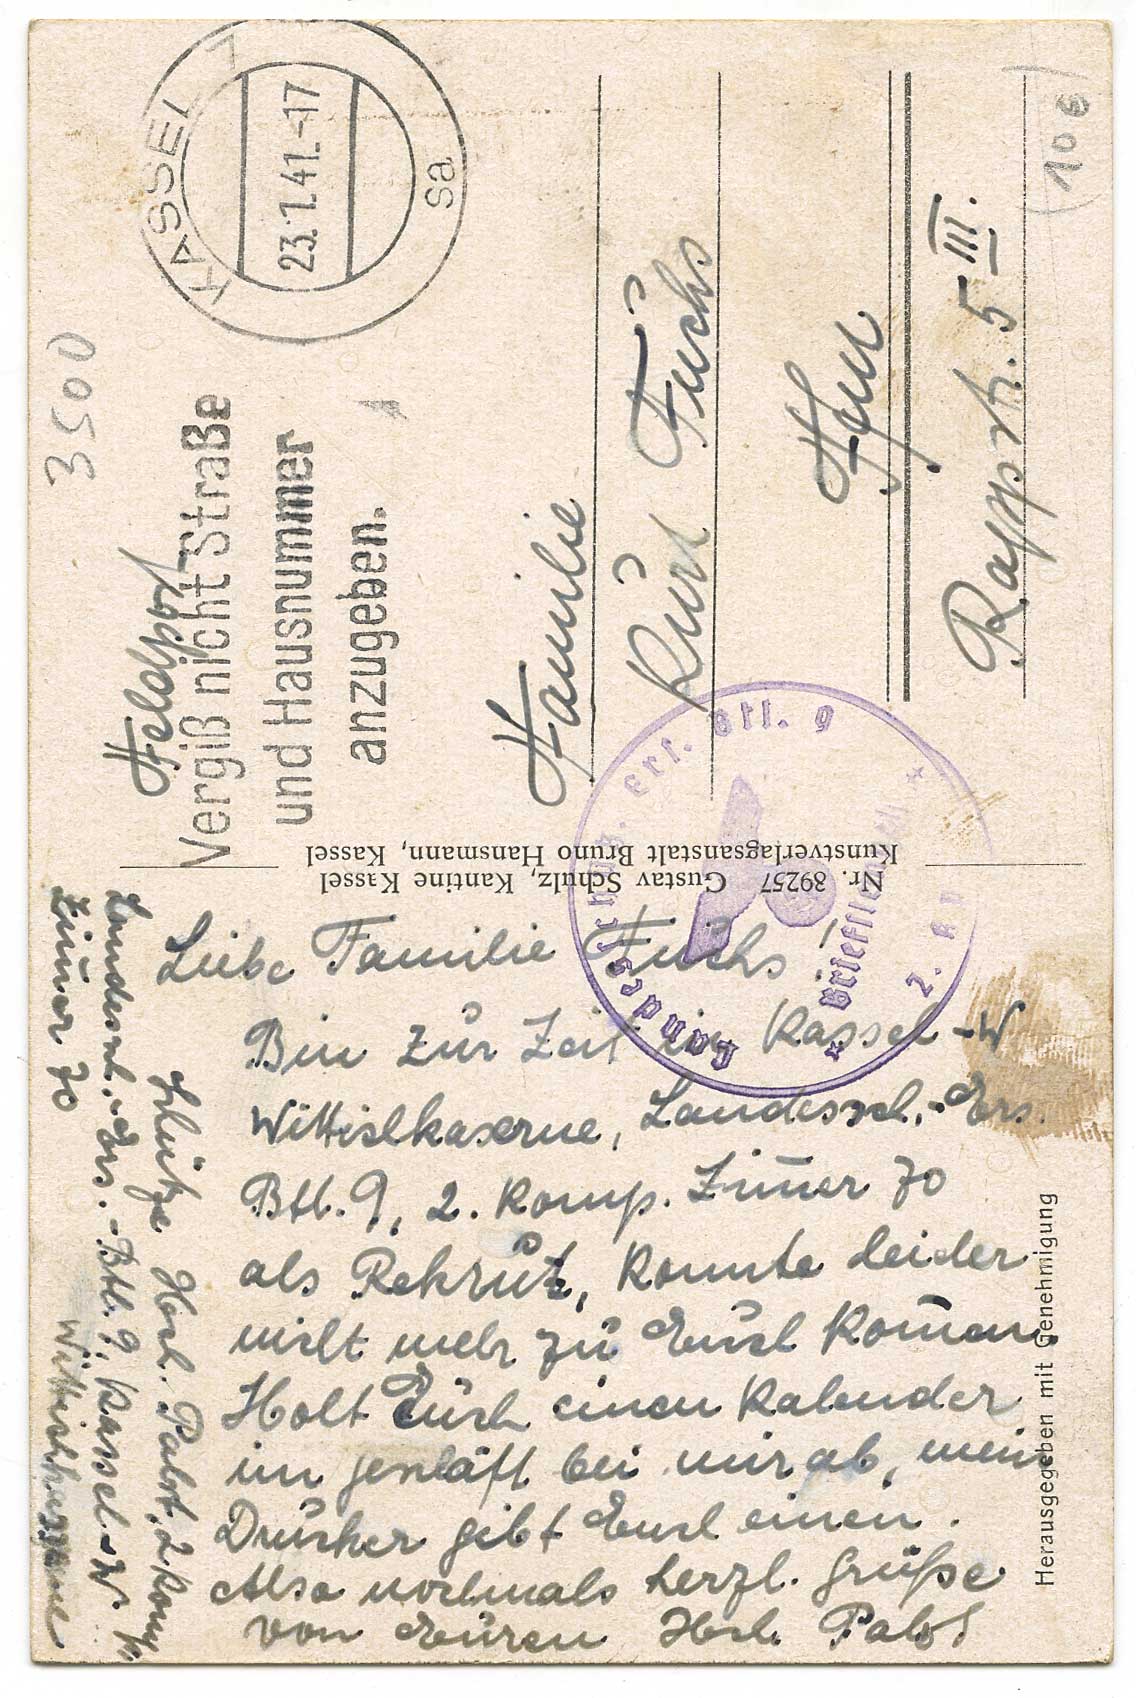 3500
KASSEL 7
23.1.41.-17
sa
Feldpost
Vergiß nicht Straße
und Hausnummer
anzugeben.
Familie
Kurt Fuchs
Rappstr. 5 III.
10€
Nr. 89257 Gustav Schulz, Kantine Kassel
Kunstverlagsanstalt Bruno Hansmann, Kassel
Landesschütz. Ers. Btl. 9
* Briefstempel *
2. K
Schütze Hch. Pabst, 2 Komp.
Landessch.-Ers.-Btl. 9, Kassel-W.
Zimmer 70
Wittichkaserne
Liebe Familie Fuchs!
Bin zur Zeit in Kassel-W
Wittichkaserne, Landessch.-Ers.
Btl. 9, 2. Komp. Zim̄er 70
als Rekrut, konnte leider
nicht mehr zu Euch kom̄en.
Holt Euch einen Kalender
im geschäft bei mir ab, mein
Drucker gibt Euch einen.
Also nochmals herzl. Grüße
von Euren Hch. Pabst
Herausgegeben mit Genehmigung